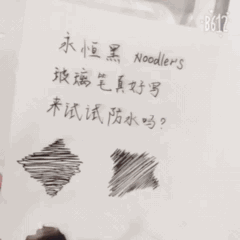 B612
永恒黑 Noodlers
玻璃笔真好写
来试试防水吗?